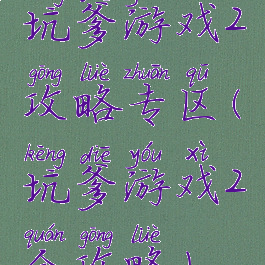 坑爹游戏2
gōng lüè zhuān qū
攻略专区(
kēng diē yóu xì
坑爹游戏2
quán gōng lüè
全攻略)